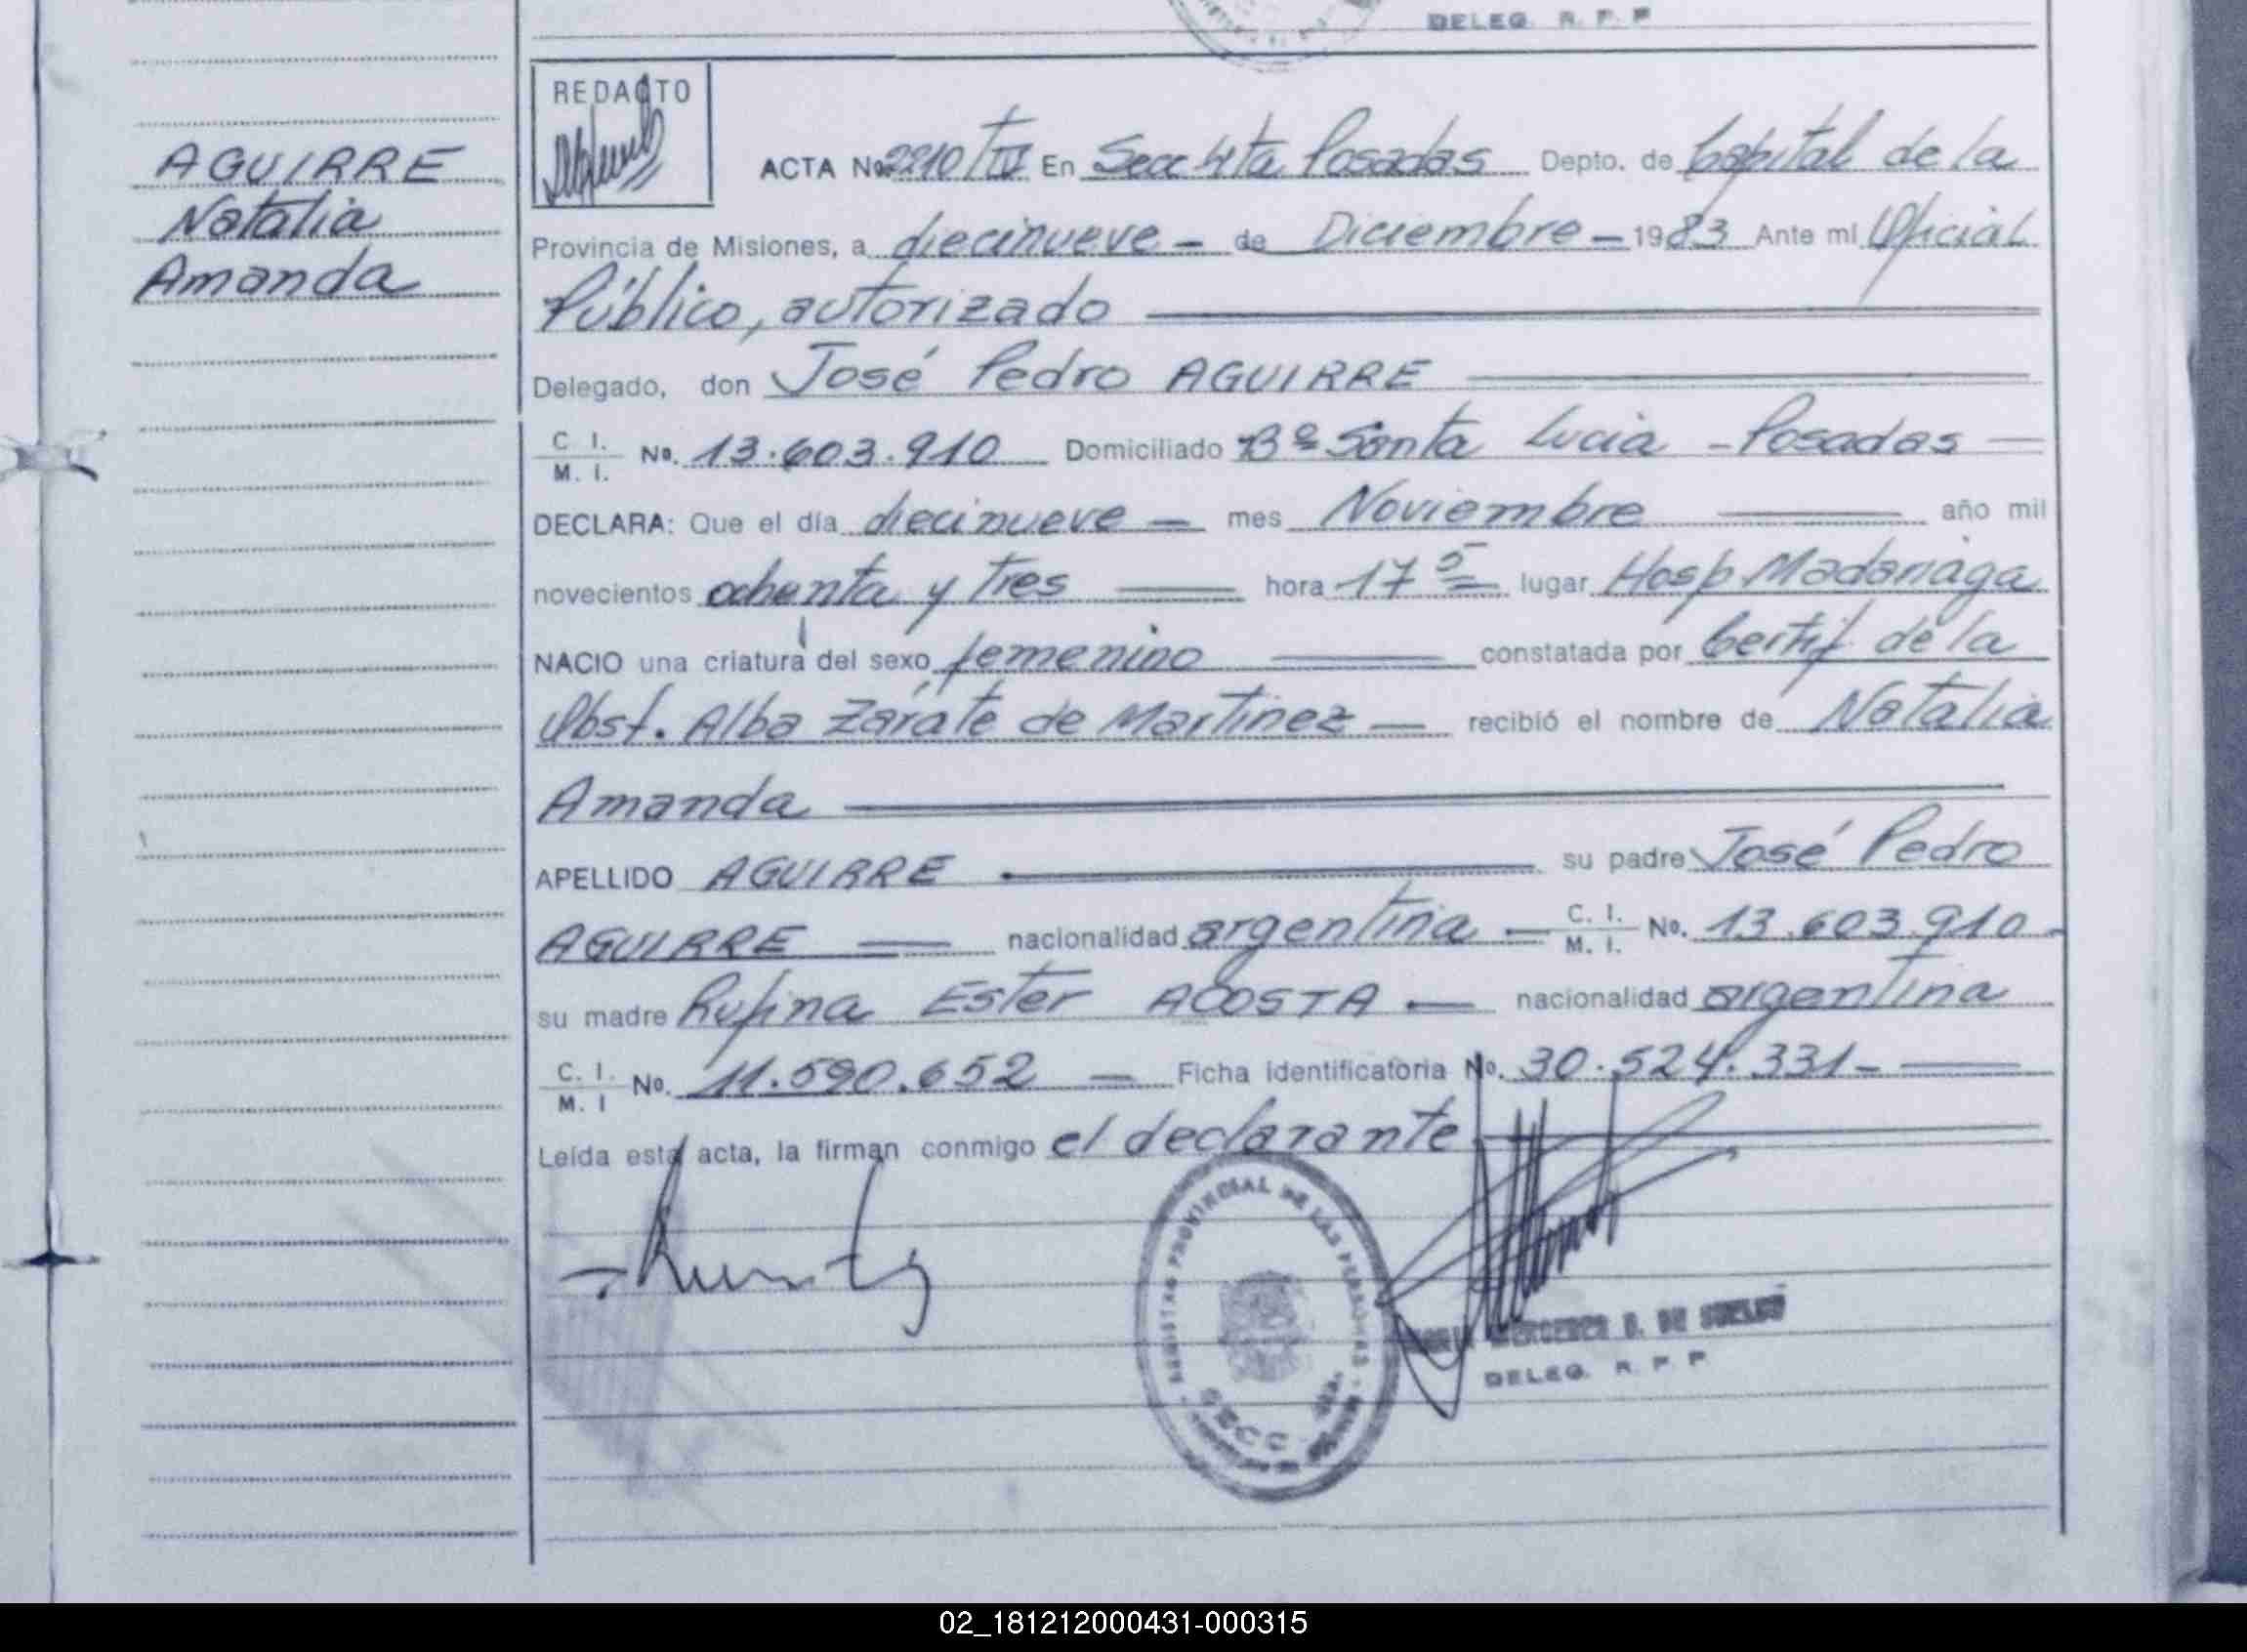 DELEG. R. P. P
REDACTO
AGUIRRE
Natalia
Amanda
ACTA No. 2210/IV En Secc 4ta Posadas Depto. de Capital de la
Provincia de Misiones, a diecinueve — de Diciembre — 1983 Ante mi Oficial
Público, autorizado
Delegado, don José Pedro AGUIRRE
C. I. M. I. No. 13.603.910 Domiciliado Bº Santa Lucia - Posadas —
DECLARA: Que el día diecinueve — mes Noviembre — año mil
novecientos ochenta y tres — hora 17 5 lugar Hosp. Madariaga
NACIO una criatura del sexo femenino — constatada por Certif de la
Obst. Alba Zárate de Martinez — recibió el nombre de Natalia
Amanda
APELLIDO AGUIRRE — su padre José Pedro
AGUIRRE — nacionalidad argentina — C. I. M. I. No. 13.603.910-
su madre Rufina Ester ACOSTA — nacionalidad argentina
C. I. M. I No. 11.590.652 — Ficha identificatoria No. 30.524.331-
Leída esta acta, la firman conmigo el declarante
REGISTRO PROVINCIAL DE LAS PERSONAS
SECC
MERCEDES
DELEG. R. P. P
02_181212000431-000315